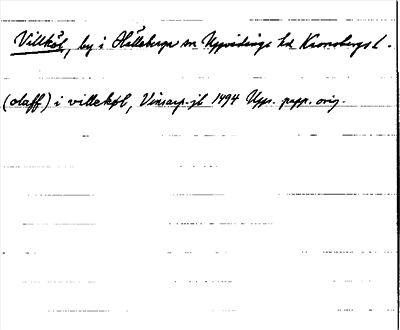 Villköl, by i Hälleberga sn Uppvidinge hd Kronobergs l.
(olaff) i villekøl, Vinsarp jb 1494 Upps. papp. orig.